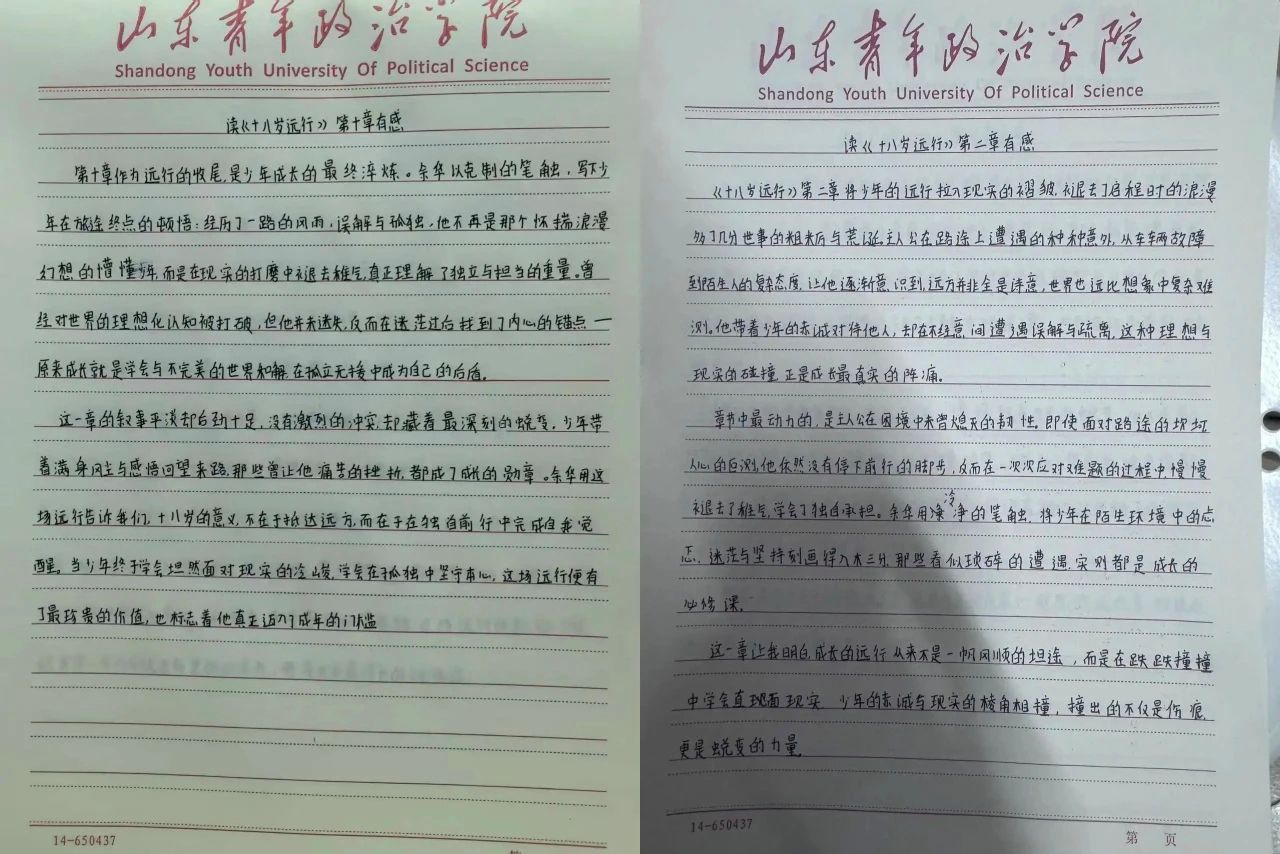 山东青年政治学院
Shandong Youth University Of Political Science
读《十八岁远行》第十章有感
第十章作为远行的收尾,是少年成长的最终淬炼。余华以克制的笔触,写下少
年在旅途终点的顿悟:经历了一路的风雨,误解与孤独,他不再是那个怀揣浪漫
幻想的懵懂少年,而是在现实的打磨中褪去稚气,真正理解了独立与担当的重量。曾
经对世界的理想化认知被打破,但他并未迷失,反而在迷茫过后找到了内心的锚点—
原来成长就是学会与不完美的世界和解,在孤立无援中成为自己的后盾。
这一章的叙事平淡却后劲十足,没有激烈的冲突,却藏着最深刻的蜕变,少年带
着满身风尘与感悟回望来路,那些曾让他痛苦的挫折,都成了成长的勋章。余华用这
场远行告诉我们,十八岁的意义,不在于抵达远方,而在于在独自前行中完成自我觉
醒。当少年终于学会坦然面对现实的冷峻,学会在孤独中坚守本心,这场远行便有
了最珍贵的价值,也标志着他真正迈入了成年的门槛
14-650437
山东青年政治学院
Shandong Youth University Of Political Science
读《十八岁远行》第二章有感
《十八岁远行》第二章将少年的远行拉入现实的褶皱,褪去了启程时的浪漫
多了几分世事的粗粝与荒诞,主人公在路途上遭遇的种种意外,从车辆故障
到陌生人的复杂态度,让他逐渐意识到,远方并非全是诗意,世界也远比想象中复杂难
测。他带着少年的赤诚对待他人,却在不经意间遭遇误解与疏离,这种理想与
现实的碰撞,正是成长最真实的阵痛。
章节中最动力的,是主人公在困境中未曾熄灭的韧性。即使面对路途的坎坷
人心的叵测,他依然没有停下前行的脚步,反而在一次次应对难题的过程中,慢慢
褪去了稚气,学会了独自承担。余华用冷净的笔触,将少年在陌生环境中的忐
忑、迷茫与坚持刻画得入木三分,那些看似琐碎的遭遇,实则都是成长的
必修课。
这一章让我明白,成长的远行从来不是一帆风顺的坦途,而是在跌跌撞撞
中学会直面现实 少年的赤诚与现实的棱角相撞,撞出的不仅是伤痕,
更是蜕变的力量
14-650437
第 页